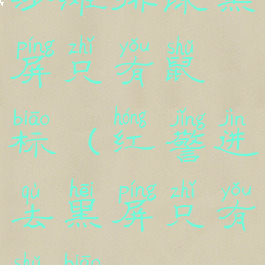 píng zhǐ yǒu shǔ
屏只有鼠
biāo hóng jǐng jìn
标（红警进
qù hēi píng zhǐ yǒu
去黑屏只有